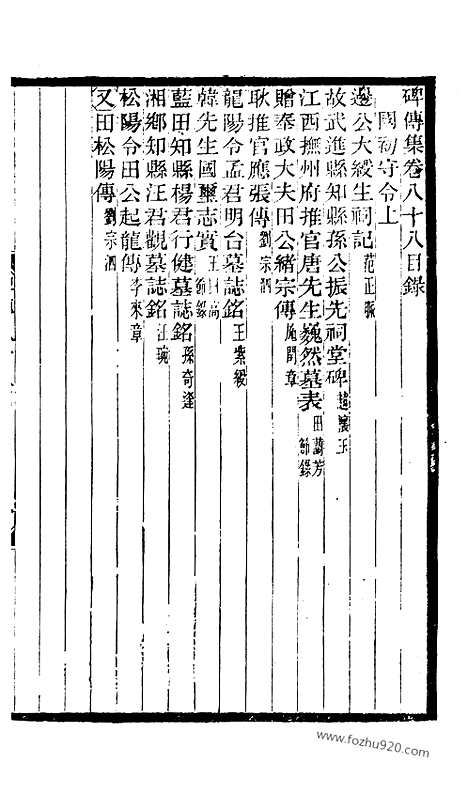 碑傳集卷八十八目錄
國初守令上
邊公大綬生祠記 范正脈
故武進縣知縣孫公振先祠堂碑 趙懷玉
江西撫州府推官唐先生巍然墓表 田蘭芳 節錄
贈奉政大夫田公緒宗傳 施閏章
耿推官應張傳 劉宗泗
龍陽令孟君明台墓誌銘 王紫綬
韓先生國璽志實 節錄
藍田知縣楊君行健墓誌銘 孫奇逢
湘鄉知縣汪君觀墓誌銘 汪琬
松陽令田公起龍傳 李來章
又田松陽傳 劉宗泗
www.fozhu920.com